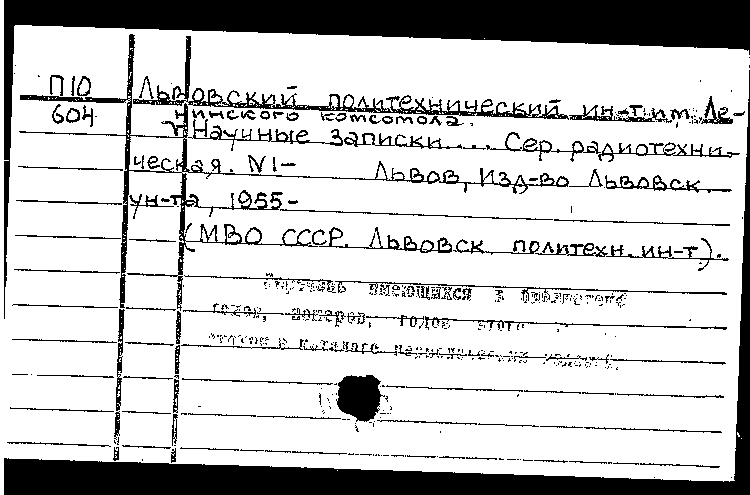 П10 Львовский политехнический ин-т им. Ле-
604 нинского комсомола.
Научные записки.... Сер. радиотехни-
ческая. N1- Львов, Изд-во Львовск.
ун-та, 1955-
(МВО СССР. Львовск. политехн. ин-т).
имеющихся в библиотеке
номеров, годов этого
в каталоге